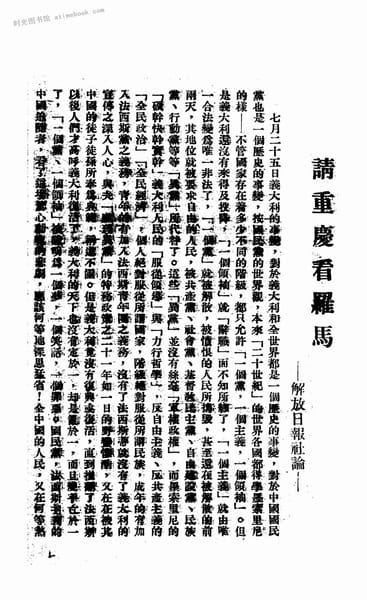 时光图书馆 · atimebook.com
請重慶看羅馬
——解放日報社論——
七月二十五日義大利的事變，對於義大利和全世界都是一個歷史的事變，對於中國國民
黨也是一個歷史的事變。按國民黨的世界觀，本來「二十世紀」的世界各國都得學墨索里尼
的樣——不管國家存在着多少不同的階級，都只允許「一個黨，一個主義，一個領袖」。但
是義大利還沒有來得及投降，「一個領袖」就「辭職」而不知所終了，「一個主義」就由唯
一合法變爲唯一非法了，「一個黨」就被解散，被憤恨的人民所搗毀，甚至還在被解散的前
兩天，其地位就被要求自由的人民，被共產黨、社會黨、基督教民主黨、自由建設黨、民族
黨、行動黨等等「異黨」所代替了。這些「異黨」並沒有絲毫「軍權政權」，而墨索里尼的
「硬幹快幹實幹」義大利人民的「服從領導」與「力行哲學」，反自由主義、反共產主義的
「全民政治」「全民經濟」，個人絕對服從所謂國家，階級絕對服從所謂民族，成年的有加
入法西斯黨之義務，青年的有加入法西斯青年團之義務，沒有了法西斯黨就沒有了義大利的
宣傳之深入人心，與夫「 」的特務政策之二十一年如一日的野蠻殘酷，又在在被其
中國的徒子徒孫所奉爲典範，稱道不置。但是義大利竟沒有復興或復活，直到推翻了法西斯
以後人們才高呼義大利復活了。義大利的天下並沒有定於一，却是亂於一，而且幾乎亡於一
了，「一個黨、一個領袖」被證明爲一個夢，一個笑話，一個罪惡。國民黨，法西斯主義的
中國追隨者，看了這幕驚心動魄的悲劇，應該何等地深思猛省！全中國的人民，又在何等熱